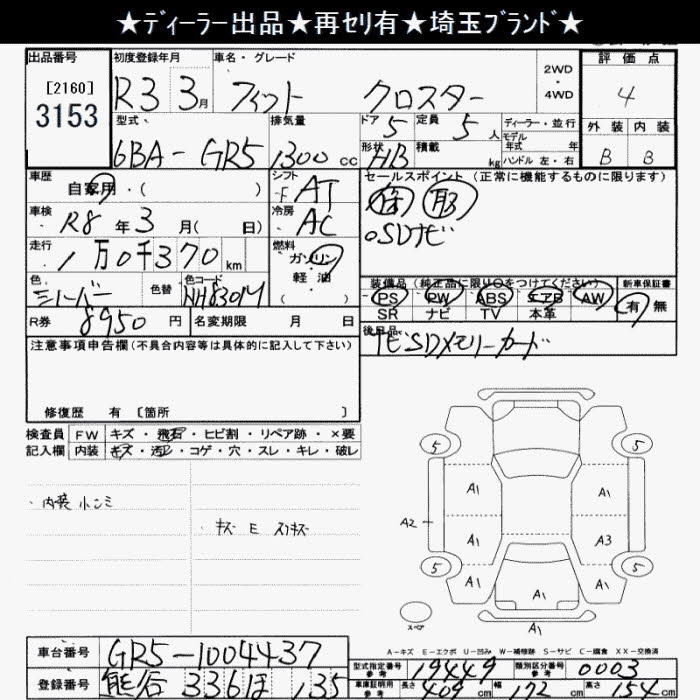 ★ディーラー出品★再セリ有★埼玉ブランド★
出品番号 初度登録年月 車名・グレード 2WD・4WD 評価点
[2160]
3153
R3 3月 フィット クロスター 4
型式 排気量 ドア 定員 ディーラー・並行 外装 内装
6BA-GR5 1300cc 5 5人 モデル年式 年
形状 HB 積載 kg ハンドル 左・右 B B
車歴 自家用・( ) シフト F AT セールスポイント (正常に機能するものに限ります)
車検 R8年3月( 日) 冷房 AC 保 取
走行 1万0千370km 燃料 ガソリン・軽油 ( ) ○SDナビ
色 シルバー 色替 色コード NH830M
装備品 (純正品に限り○をつけてください) 新車保証書
PS PW ABS エアB AW 有 無
SR ナビ TV 本革
R券 8950円 名変期限 月 日
後日品 TEL SDメモリーカード
注意事項申告欄(不具合内容等は具体的に記入して下さい)
修復歴 有 [箇所 ]
検査員記入欄 FW キズ・飛石・ヒビ割・リペア跡・×要
内装 キズ・汚レ・コゲ・穴・スレ・キレ・破レ
・内装 小シミ
・キズ E スリキズ
5 5
A1 A1
A2 A1 A3
5 5
A1 A1 A1
A1
スペア
A-キズ E-エクボ U-凹み W-補修跡 S-サビ C-腐食 XX-交換済
車台番号 GR5-1004437 型式指定番号 参考 19449 類別区分番号 参考 0003
登録番号 熊谷 336ほ 135 車庫証明用 参考 長さ 409cm 幅 172cm 高さ 154cm